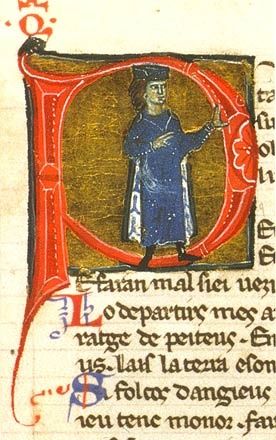 P
E faran mal siei uezi
Lo departirs mes a
ratge de peiteus · En
us · lais la terra eson
Si folcos dangieus
ieu tenc monor · fa